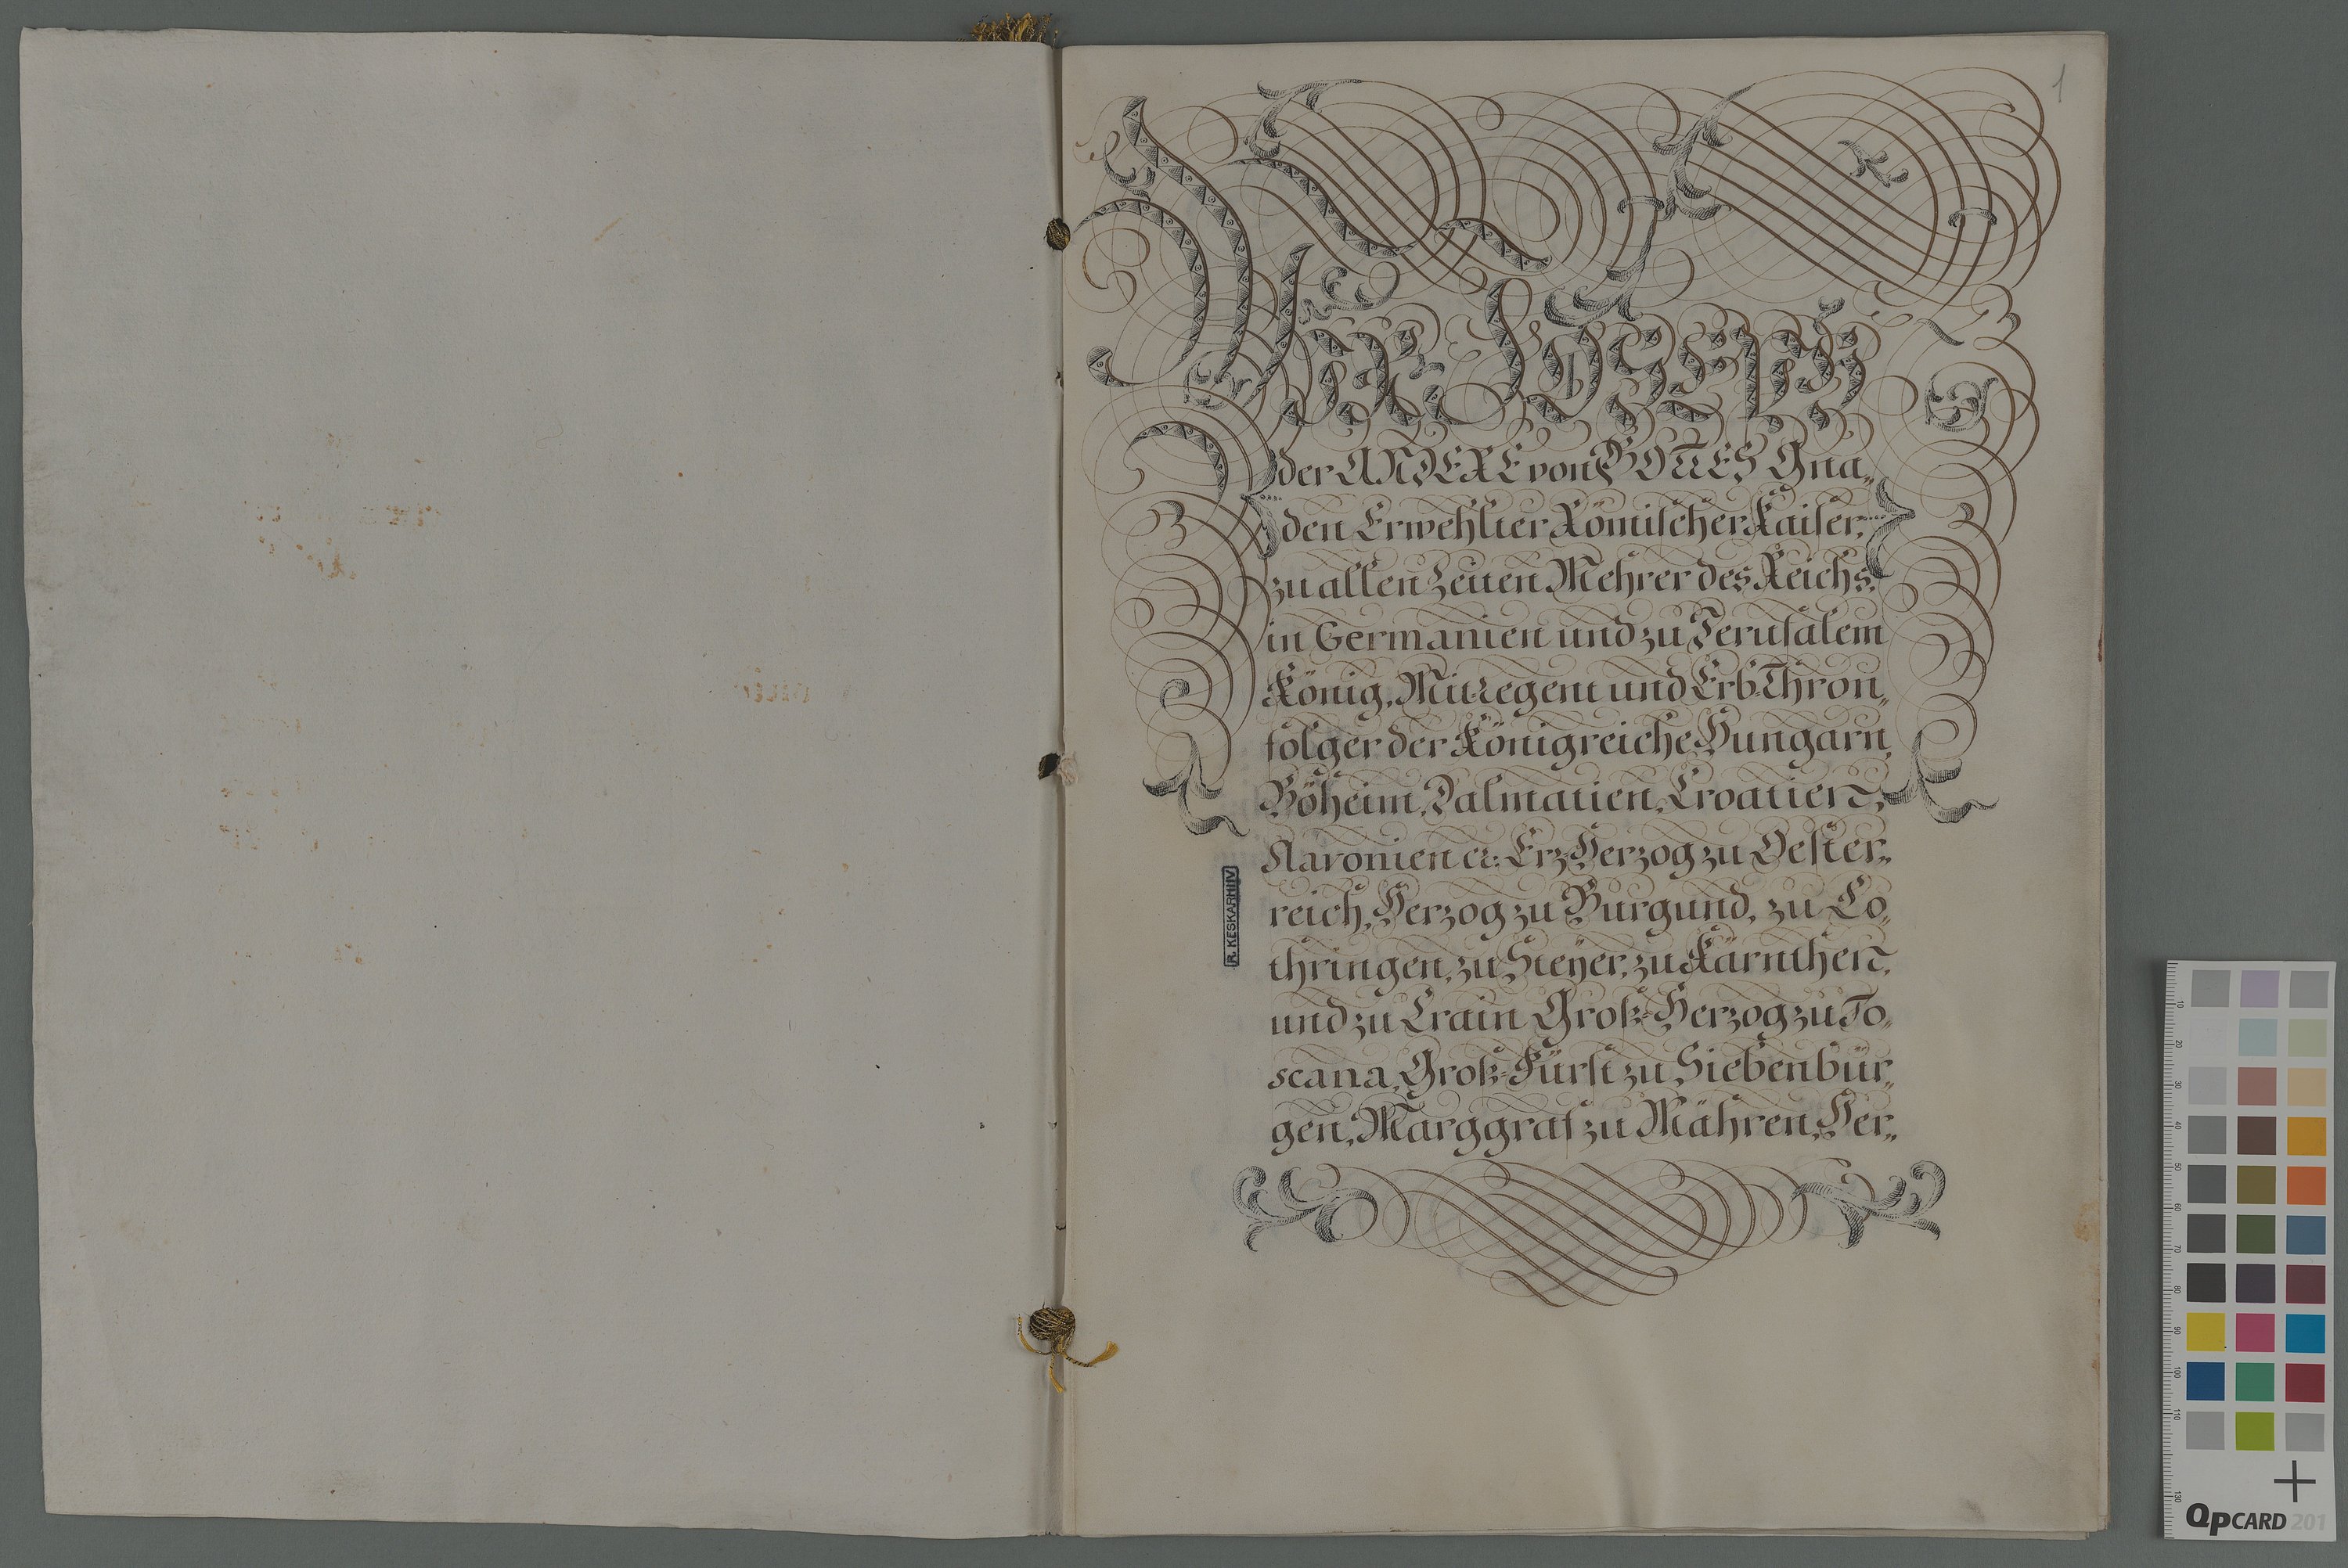 1
Wir Joseph
der ANDERE von GOTTES Gna„
den Erwehlter Römischer Kaiser,
zu allen Zeiten Mehrer des Reichs,
in Germanien und zu Jerusalem
König, Mitregent und Erb-Thron„
folger der Königreiche Hungarn,
Böheim, Dalmatien, Croatien,
Slavonien ec: Erz-Herzog zu Oester„
reich, Herzog zu Burgund, zu Lo„
thringen, zu Steyer, zu Kärnthen,
und zu Crain Groß-Herzog zu To„
scana, Groß-Fürst zu Siebenbür„
gen, Marggraf zu Mähren, Her„
R. KESKARHIIV
10
20
30
40
50
60
70
80
90
100
110
130
QpCARD 201